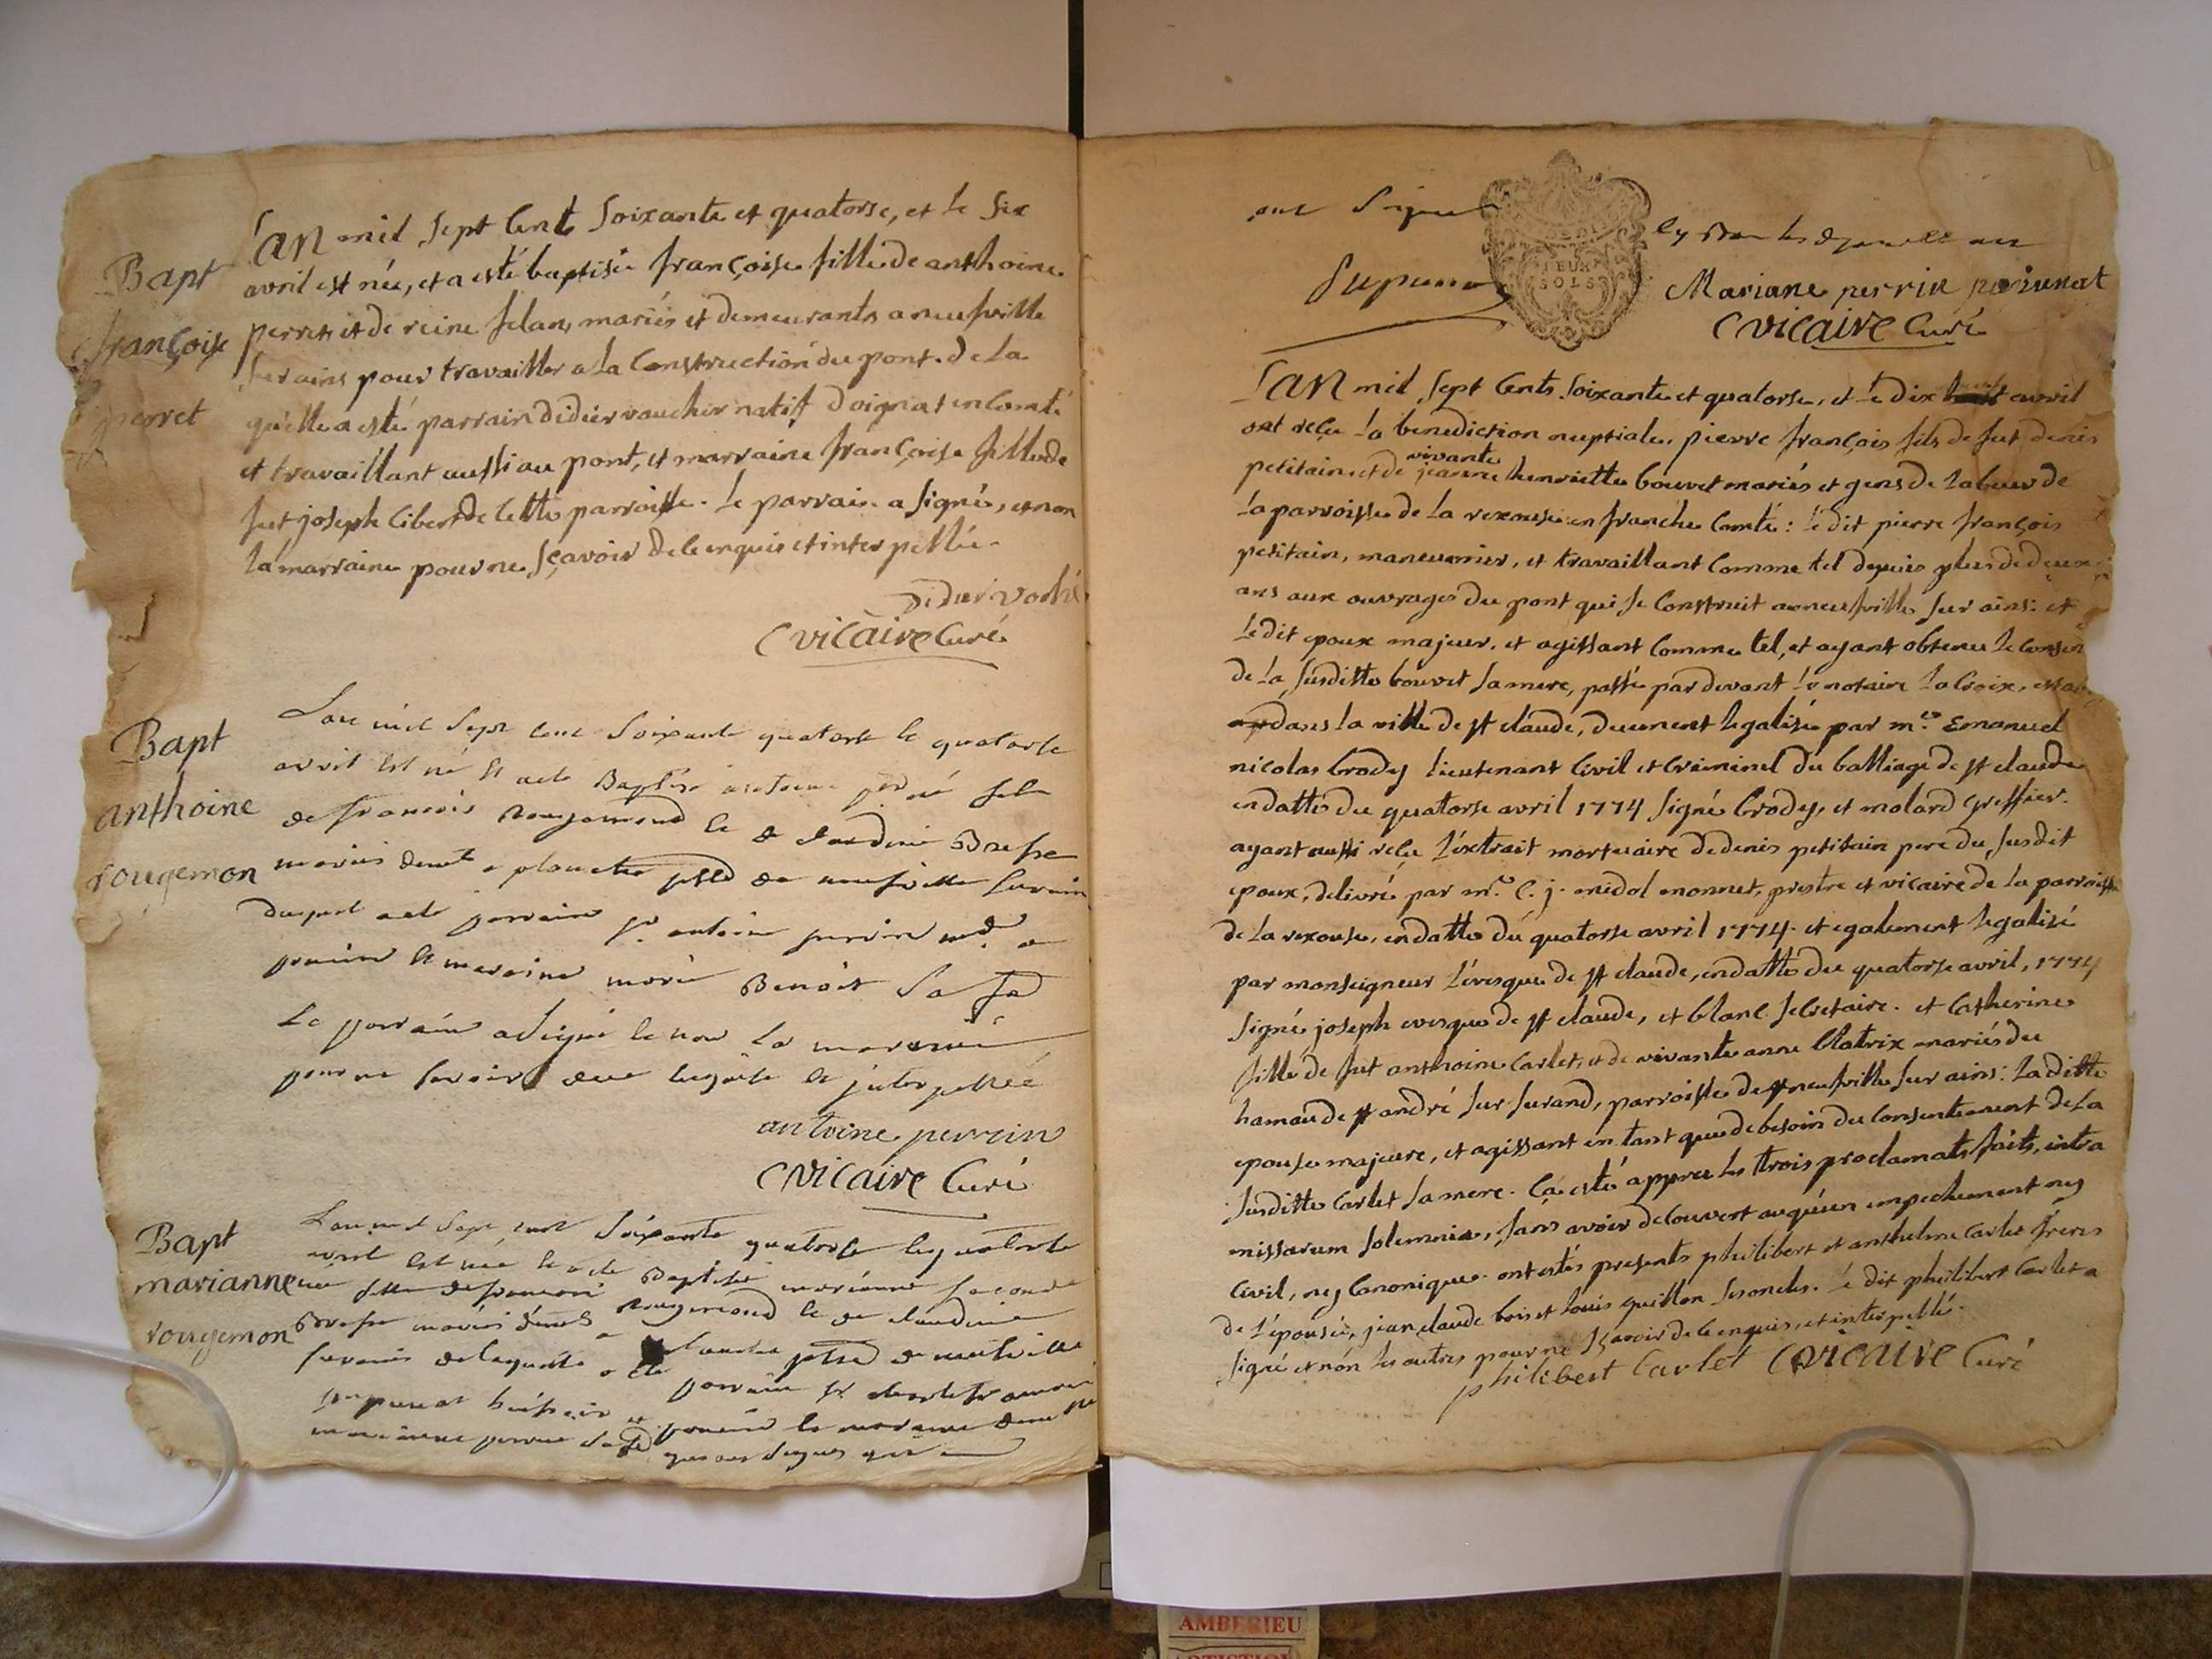 Bapt
françoise
perret
L'an mil sept Cents soixante et quatorse, et le six
avril est née, et a esté baptisée françoise fille de anthoine
perret et de reine felan, mariés et demeurants a neufville
sur ains pour travailler a la Construction du pont. de la
quelle a esté parrain didier vauchier natif d'oigna en Comté
et travaillant aussi au pont, et marraine françoise fille de
fut joseph Cibert de cette parroisse. le parrain a signé, et non
la marraine pour ne sçavoir de ce enquis et interpellée.
Didier Voché
C vicaire Curé
Bapt
anthoine
rougemon
L'an mil sept cent soixante quatorse le quatorse
avril est né et a ete Baptisé antoine né fils
de francois rougemond et de claudine Bresse
mariés demt a planche psse de neufville surain
duquel a ete parrain sr antoine perrin md a
poncin et maraine marie Benoit sa fe
Le parrain a signé et non la maraine
pour ne savoir de ce enquise et interpellée
antoine perrin
C vicaire Curé
Bapt
marianne
rougemon
L'an mil sept cent soixante quatorse le quatorse
avril est née et a ete Baptisée marianne seconde
née fille de francois rougemond et de claudine
Bresse mariés demt a planche psse de neufville
surains de laquelle a ete parrain sr
huissier a poncin la maraine
marianne perrin sa fe qui ont signes
ont signé
Mariane perrin
C vicaire Curé
DEUX
SOLS
L'an mil sept Cents soixante et quatorse, et le dix avril
ont reçu la benediction nuptiale, pierre françois fils de fut denis
petitain, et de vivante jeanne henriette bouvet mariés et gens de labeur de
la parroisse de la rixouse en franche Comté: le dit pierre françois
petitain, maneuvrier, et travaillant Comme tel depuis plus de deux
ans aux ouvrages du pont qui se Construit a neufville sur ains: et
le dit epoux majeur, et agissant Comme tel, et ayant obtenu le Consen
de la susditte bouvet sa mere, passé par devant le notaire la Croix,
dans la ville de st claude, deuement legalisé par mre Emanuel
nicolas Crody lieutenant Civil et Criminel du balliage de st claude
en datte du quatorse avril 1774 signé Crody, et molard greffier.
ayant aussi reçu l'extrait mortuaire de denis petitain pere du susdit
epoux, delivré par mre C. j. midol monnet, prestre et vicaire de la parroisse
de la rixouse, en datte du quatorse avril 1774. et egalement legalisé
par monseigneur l'évesque de st claude, en datte du quatorse avril, 1774
signé joseph evesque de st claude, et blanc secretaire. et Catherine
fille de fut anthoine Carlet, et de vivante anne Blatrix mariés du
hamau de st andré sur surand, parroisse de neufville sur ains: la ditte
epouse majeure, et agissant en tant que de besoin du Consentement de la
susditte Carlet sa mere. Ça esté appres les trois proclamats faits, intra
missarum solemnia, sans avoir decouvert auquun empechement ny
Civil, ny Canonique. ont estés presents philibert et anthelme Carlet freres
de l'épousée, jean claude bois et louis guillon ses oncles. le dit philibert Carlet a
signé et non les autres pour ne sçavoir de ce enquis, et interpellé.
philibert Carlet C vicaire Curé
AMBERIEU